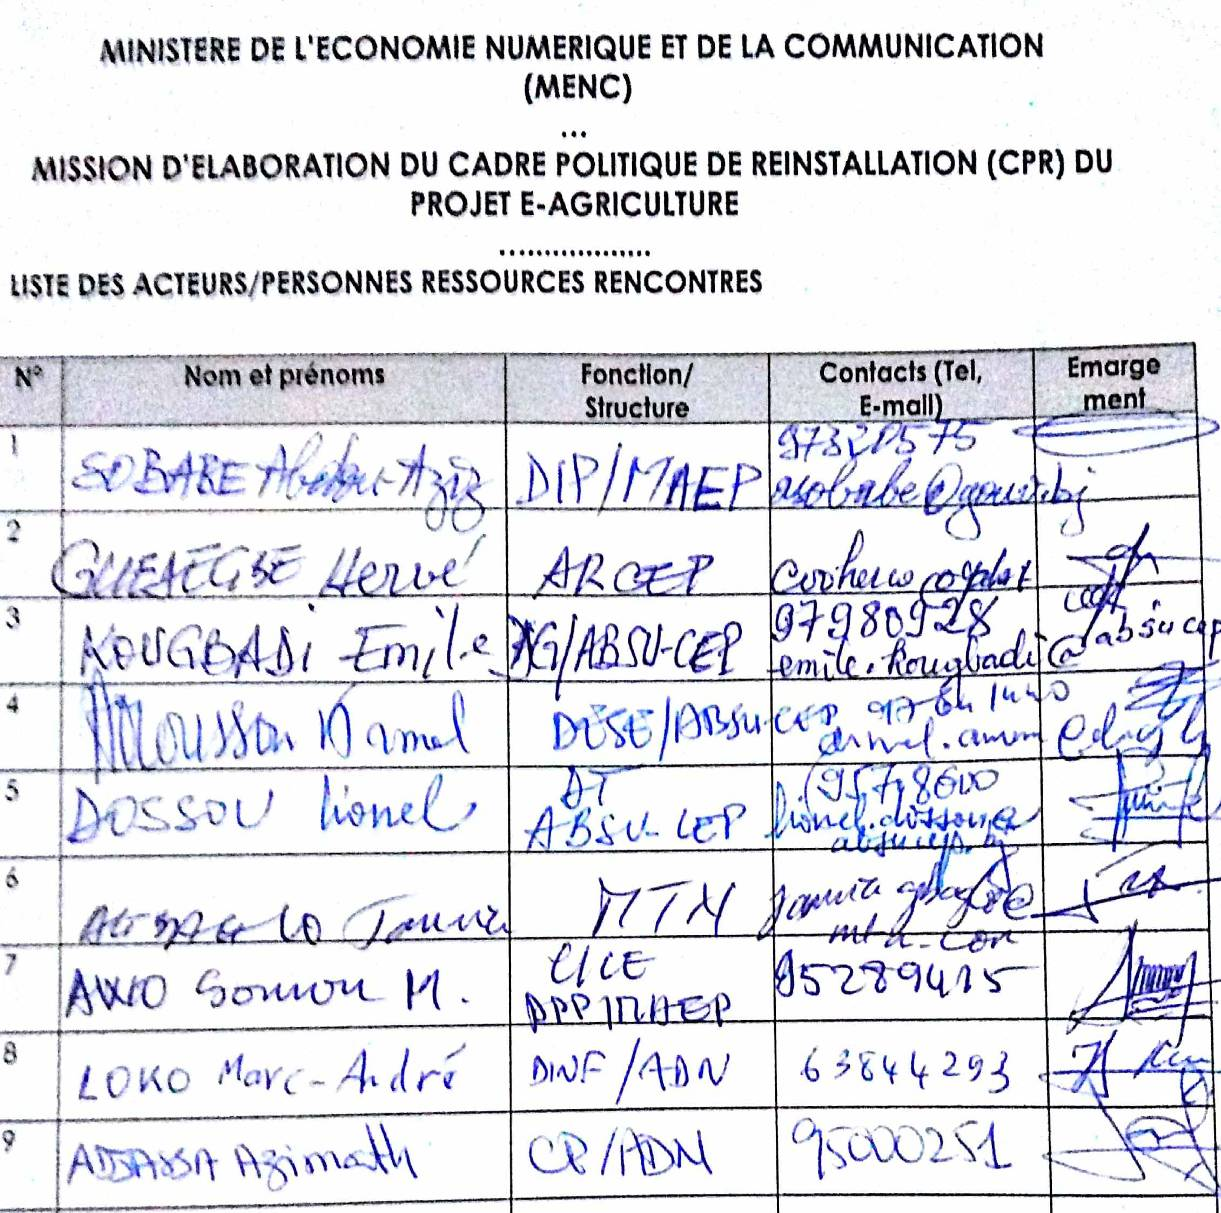 MINISTERE DE L'ECONOMIE NUMERIQUE ET DE LA COMMUNICATION
(MENC)
...
MISSION D'ELABORATION DU CADRE POLITIQUE DE REINSTALLATION (CPR) DU
PROJET E-AGRICULTURE
..................
LISTE DES ACTEURS/PERSONNES RESSOURCES RENCONTRES
N° Nom et prénoms Fonction/ Structure Contacts (Tel, E-mail) Emarge ment
1 SOBABE Abdou Aziz DIP/MAEP asobabe@gouv.bj
2 Hervé ARCEP
3 KOUGBADI Emile DG/ABSU-CEP 97980928
emile.kougbadi@absucep
4 DESE/ABSU-CEP
5 DOSSOU Lionel DT
ABSU-CEP lionel.dossou@
absucep.bj
6 MTN
mtn.com
7 AWO M. C/CE
DPP/MAEP 95289415
8 LOKO Marc-André DINF/ADN 63844293
9 Azimath CP/ADN 95000251